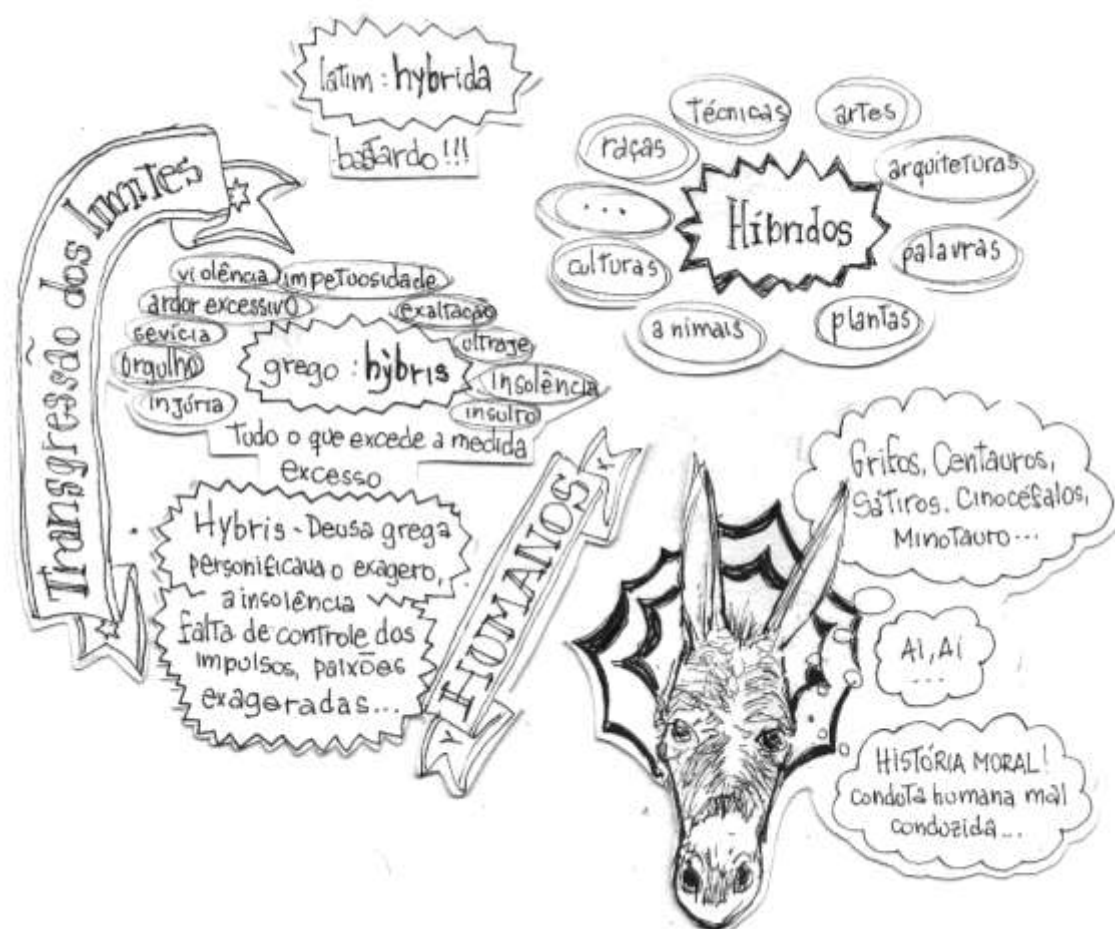 latim : hybrida
bastardo!!!
Transgressão dos limites
violência
impetuosidade
ardor excessivo
exaltação
sevícia
ultraje
orgulho
grego : hỳbris
insolência
injúria
insulto
Tudo o que excede a medida
excesso
Hybris - Deusa grega
personificava o exagero,
a insolência
falta de controle dos
impulsos, paixões
exageradas...
HUMANOS
técnicas
artes
raças
arquiteturas
...
Híbridos
culturas
palavras
animais
plantas
Grifos, Centauros,
Sátiros, Cinocéfalos,
Minotauro...
Ai, Ai
...
HISTÓRIA MORAL!
conduta humana mal
conduzida...